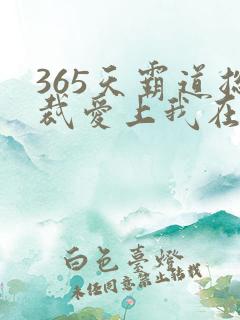 365天霸道总
裁爱上我在
白色台灯
未经同意禁止转载